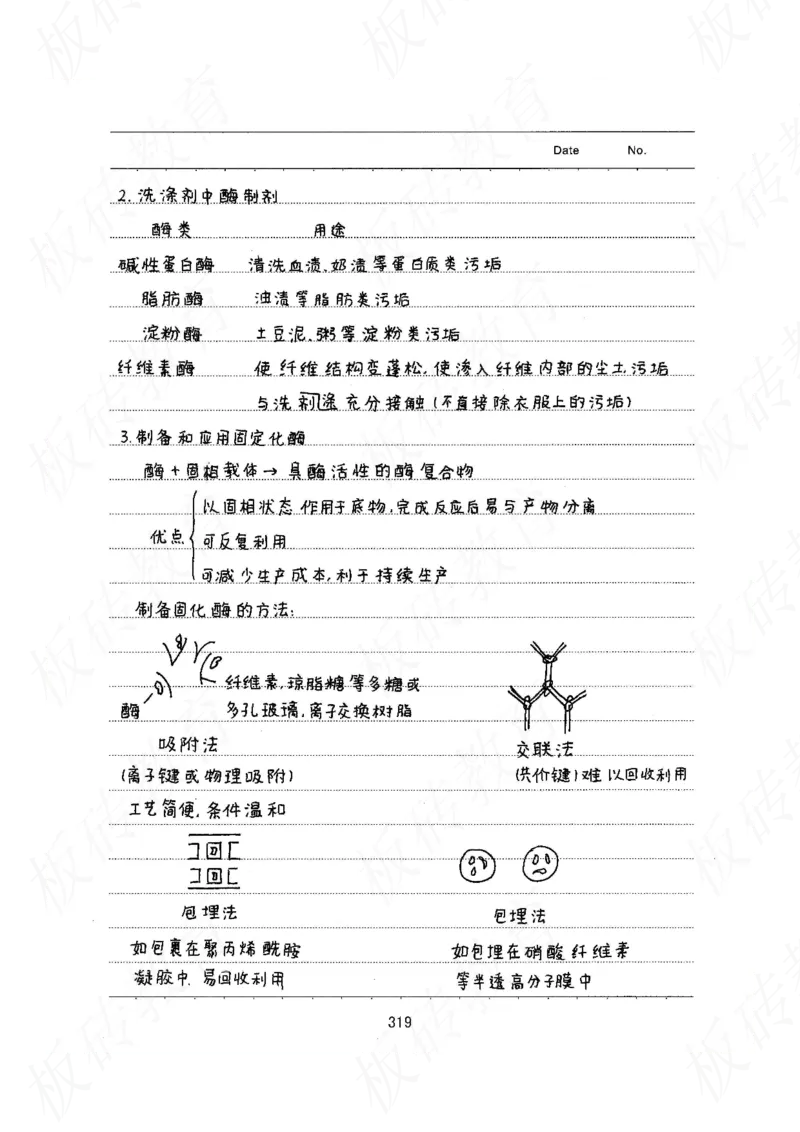 Date No.
2. 洗涤剂中酶制剂
酶类 用途
碱性蛋白酶 清洗血渍、奶渍等蛋白质类污垢
脂肪酶 油渍等脂肪类污垢
淀粉酶 土豆泥、粥等淀粉类污垢
纤维素酶 使纤维结构变蓬松,使渗入纤维内部的尘土、污垢
与洗剂涤充分接触(不直接除衣服上的污垢)
3. 制备和应用固定化酶
酶+固相载体→具酶活性的酶复合物
优点
以固相状态作用于底物,完成反应后易与产物分离
可反复利用
可减少生产成本,利于持续生产
制备固化酶的方法:
纤维素,琼脂糖等多糖或
酶 多孔玻璃,离子交换树脂
吸附法 交联法
(离子键或物理吸附) (共价键)难以回收利用
工艺简便,条件温和
包埋法 包埋法
如包裹在聚丙烯酰胺 如包埋在硝酸纤维素
凝胶中.易回收利用 等半透高分子膜中
319
板砖教育